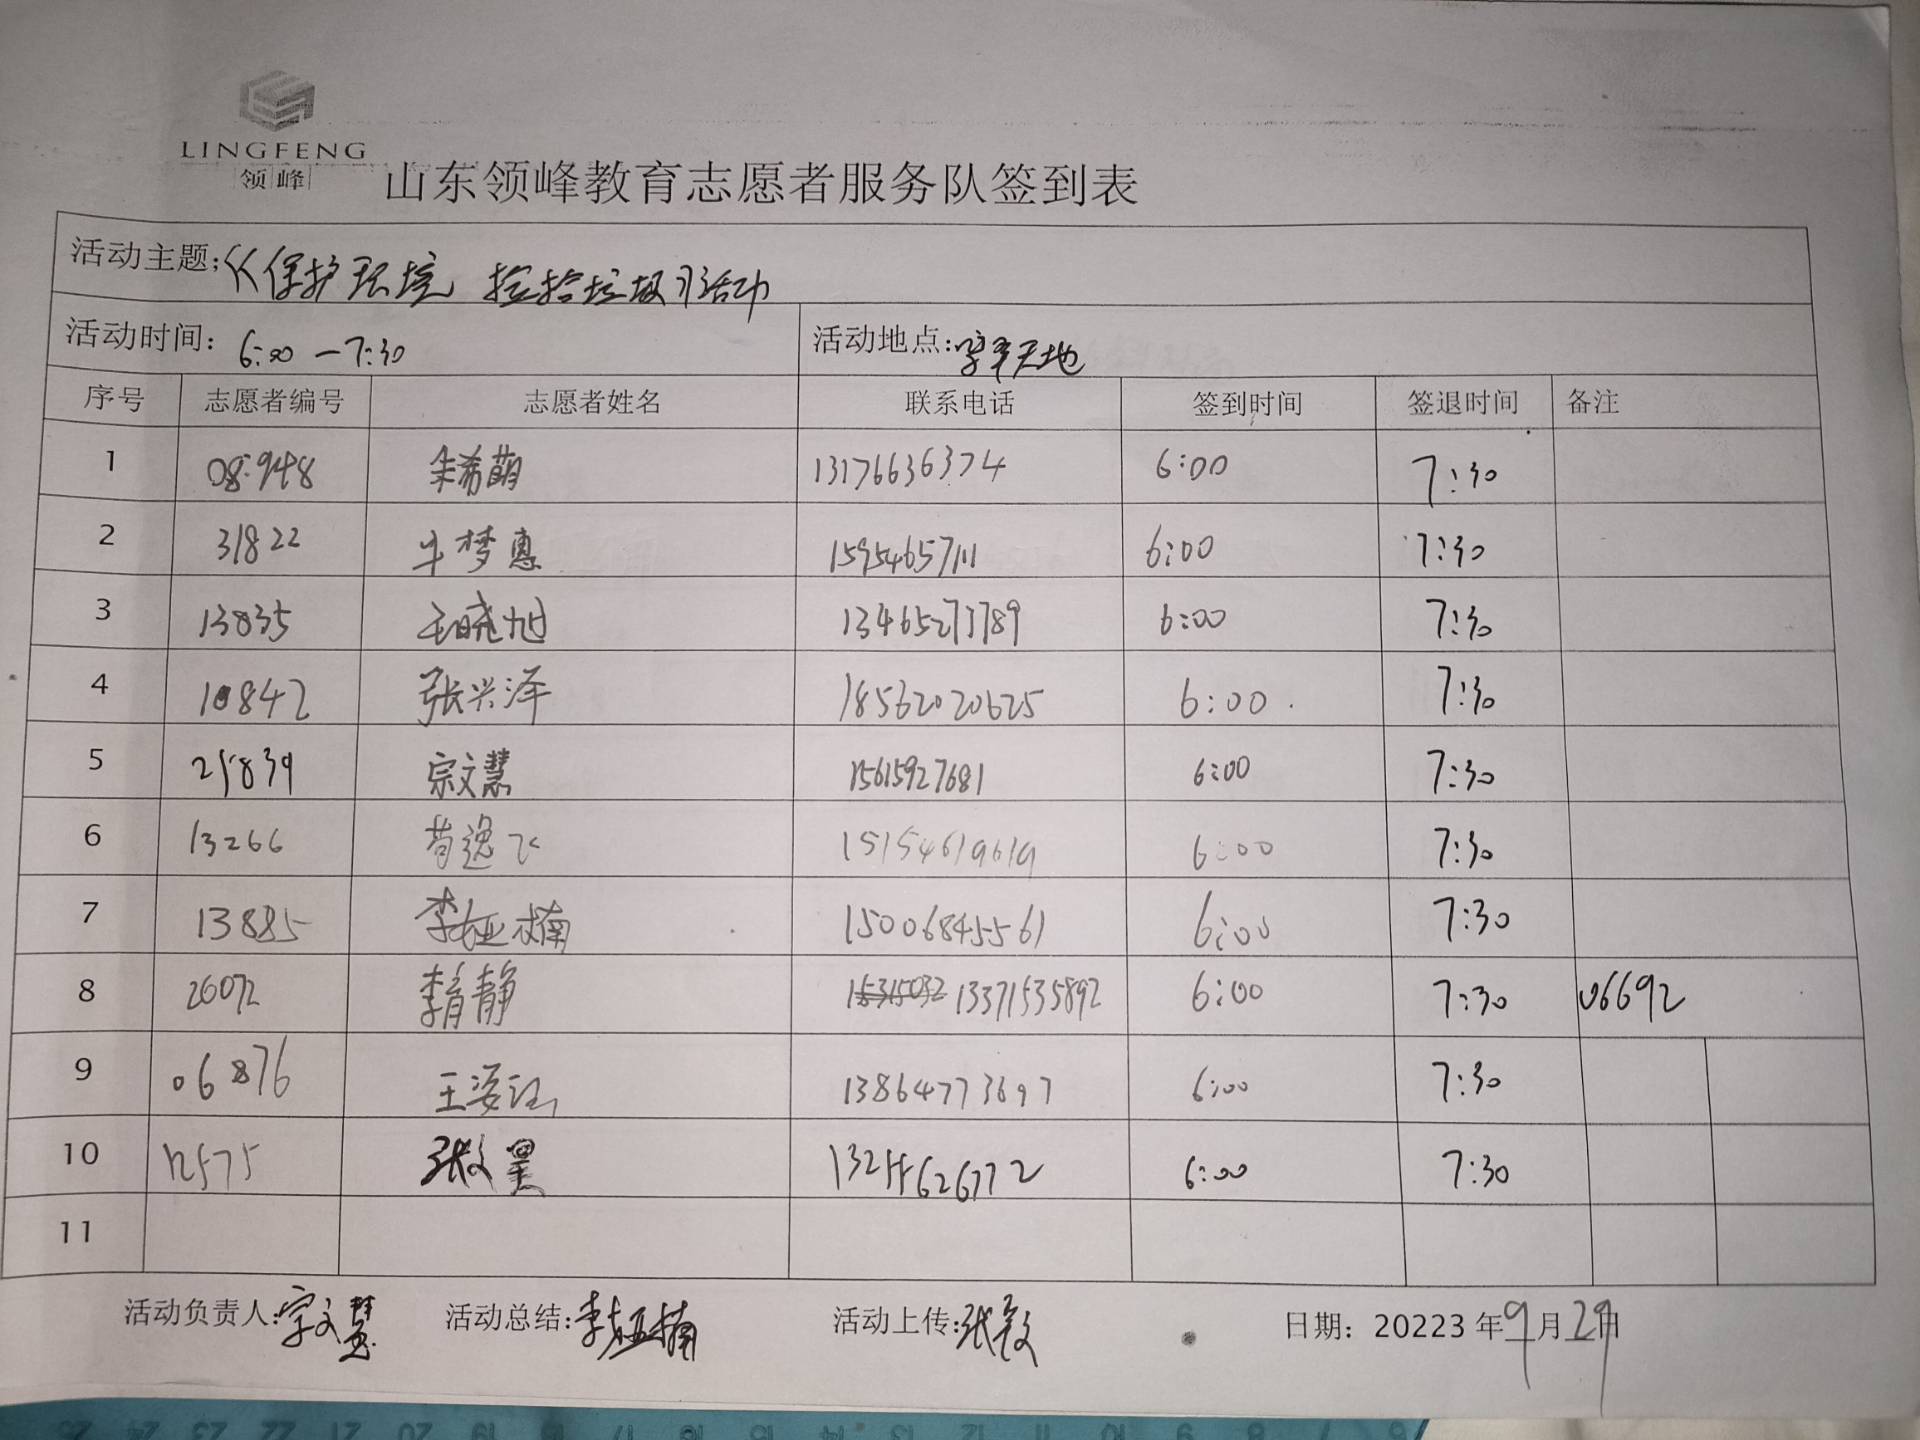 LINGFENG
领峰
山东领峰教育志愿者服务队签到表
活动主题：《保护环境 捡拾垃圾》活动
活动时间：6:00—7:30 活动地点：天地
序号 志愿者编号 志愿者姓名 联系电话 签到时间 签退时间 备注
1 08948 朱希萌 13176636374 6:00 7:30
2 31822 牛梦惠 15954657111 6:00 7:30
3 13835 王晓旭 13465273789 6:00 7:30
4 10842 张兴泽 18562020625 6:00 7:30
5 25839 宗文慧 15615927681 6:00 7:30
6 13266 苟逸飞 15154619619 6:00 7:30
7 13885 李娅楠 15006845561 6:00 7:30
8 26072 李育静 13371535892 6:00 7:30 06692
9 06876 王姿 13864773697 6:00 7:30
10 12575 张文昊 13255626772 6:00 7:30
11
活动负责人：宗文慧 活动总结：李娅楠 活动上传：张 日期：20223年9月29日
25 24 23 22 21 20 19 18 17 16 15 14 13 12 11 10 9 8 7 6